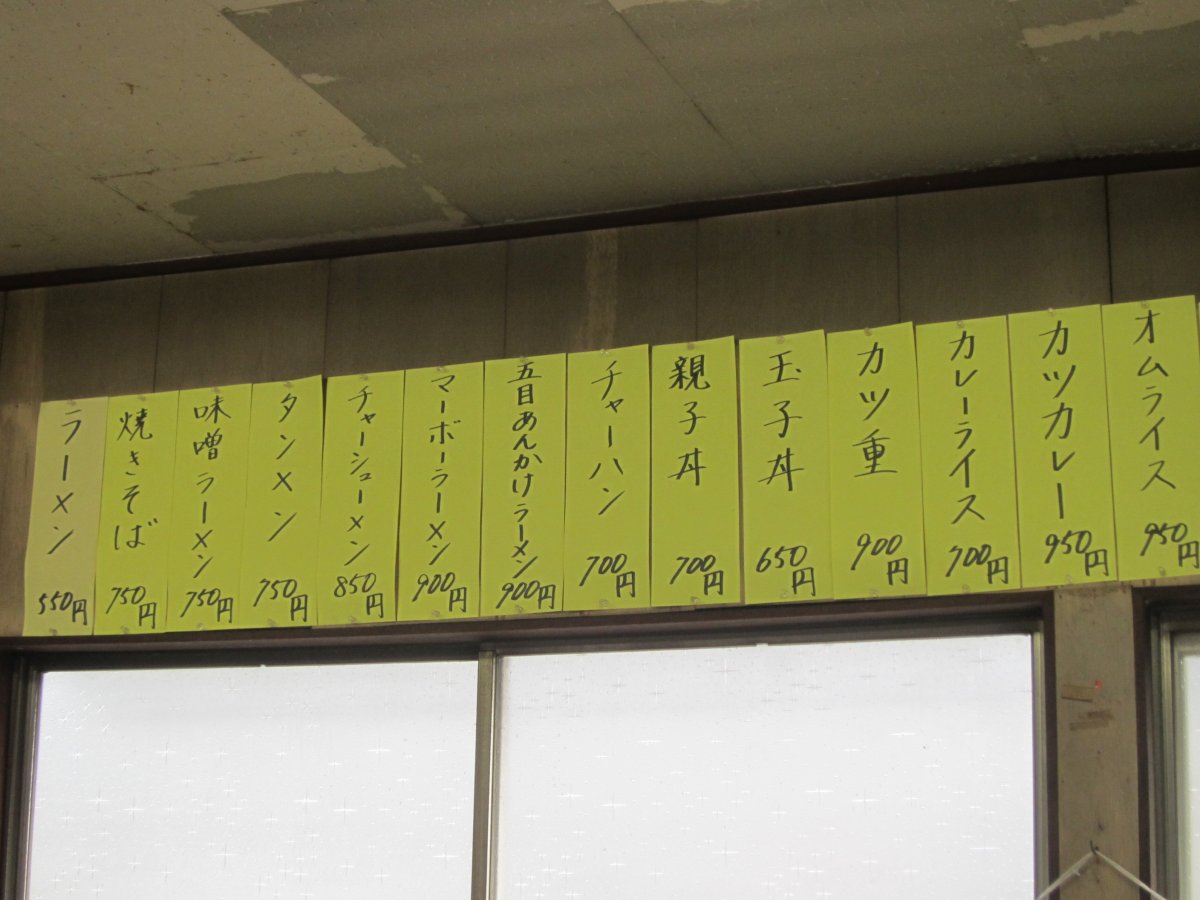 ラーメン
550円
焼きそば
750円
味噌ラーメン
750円
タンメン
750円
チャーシューメン
850円
マーボーラーメン
900円
五目あんかけラーメン
900円
チャーハン
700円
親子丼
700円
玉子丼
650円
カツ重
900円
カレーライス
700円
カツカレー
950円
オムライス
950円